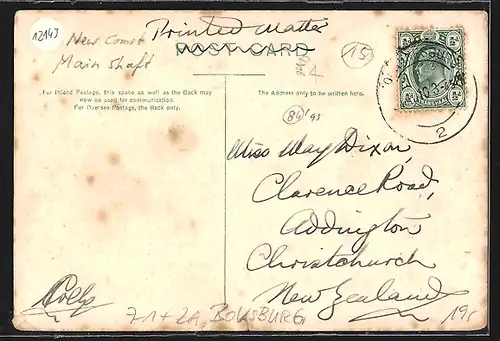 12143
Printed Matter
New Comet
Main Shaft
POST CARD
15
For Inland Postage, this space as well as the Back may
now be used for communication.
For Oversea Postage, the Back only.
The Address only to be written here.
84/95
TRANSVAAL
2
Miss May Dixon,
Clarence Road,
Addington
Christchurch
New Zealand
7 1 + 2A BOKSBURG